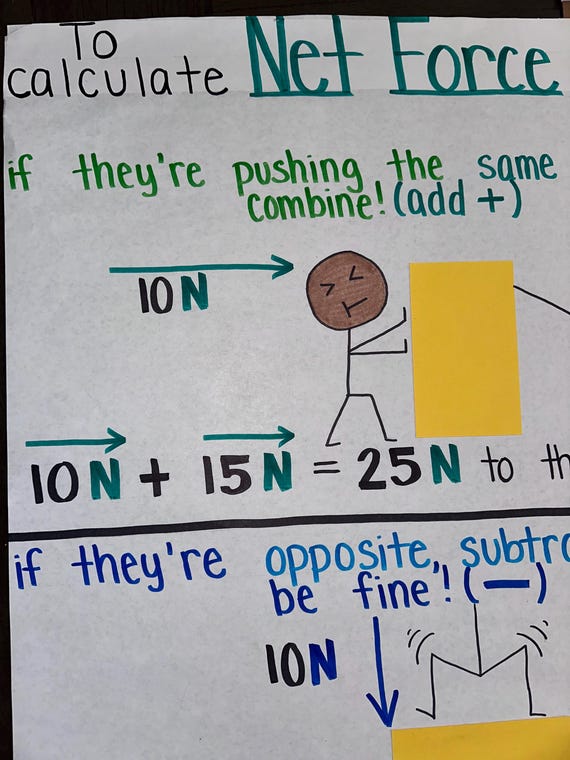 To
calculate Net Force
if they're pushing the same
combine! (add +)
10N
10N + 15N = 25N to
if they're opposite,
be fine! (—)
10N